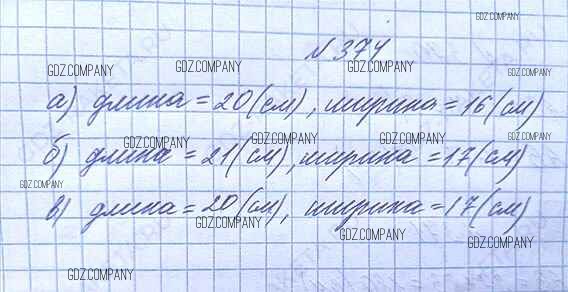 GDZ.COMPANY
№ 374
GDZ.COMPANY GDZ.COMPANY GDZ.COMPANY GDZ.COMPANY
а) длина = 20 (см), ширина = 16 (см)
GDZ.COMPANY GDZ.COMPANY GDZ.COMPANY GDZ.COMPANY
б) длина = 21 (см), ширина = 17 (см)
GDZ.COMPANY
в) длина = 20 (см), ширина = 17 (см)
GDZ.COMPANY GDZ.COMPANY GDZ.COMPANY
GDZ.COMPANY